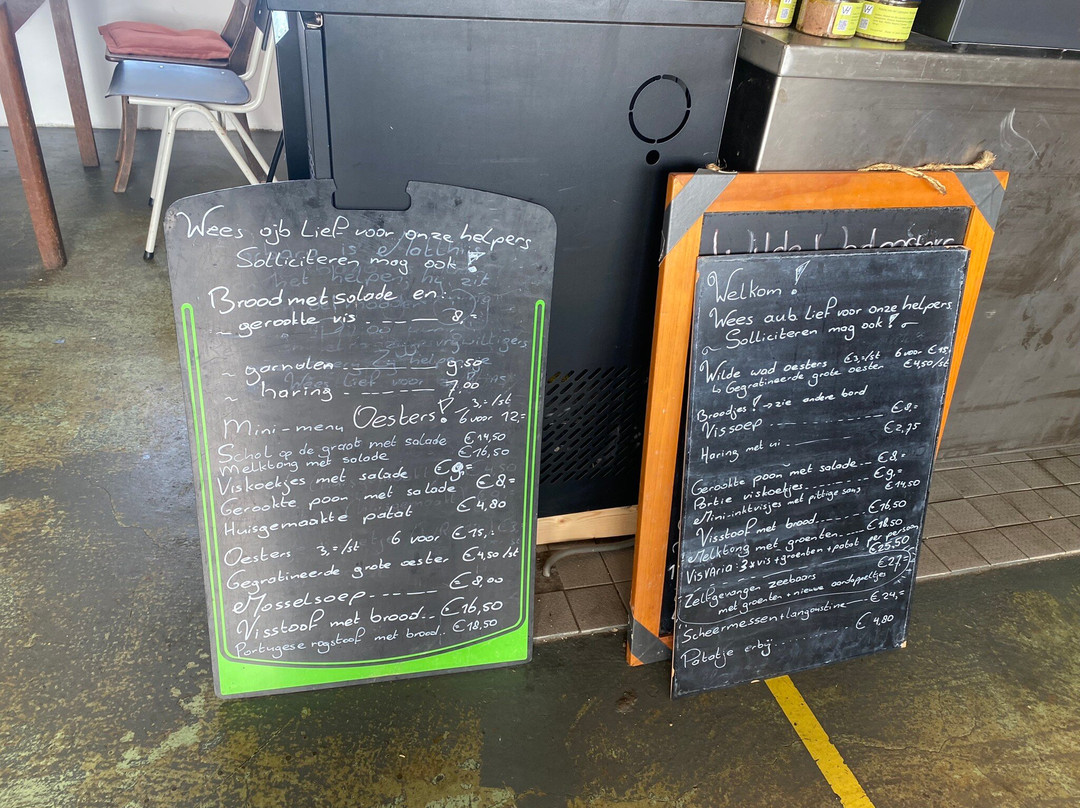 Wees ajb Lief voor onze helpers
Solliciteren mag ook!
Brood met salade en:
~ gerookte vis ---- 8,=
~ garnalen ---- 9.50
~ haring ---- 7,00
Oesters! 3,=/st
Mini-menu 6 voor 12,=
Schol op de graat met salade €14,50
Melktong met salade €16,50
Viskoekjes met salade €9,=
Gerookte poon met salade €8,=
Huisgemaakte patat €4,80
Oesters 3,=/st 6 voor €15,=
Gegratineerde grote oester €4,50/st
Mosselsoep ----- €8,00
Visstoof met brood.. €16,50
Portugese rogstoof met brood.. €18,50
Welkom!
Wees aub lief voor onze helpers
~ Solliciteren mag ook! ~
Wilde wad oesters €3,=/st 6 voor €15,
↳ Gegratineerde grote oester €4,50/st
Broodjes! → zie andere bord
Vissoep ---- €8,=
Haring met ui ---- €2,75
Gerookte poon met salade --- €8,=
Portie viskoekjes ---- €9,=
Mini-inktvisjes met pittige saus €14,50
Visstoof met brood ---- €16,50
Melktong met groenten ---- €18,50
VisVaria: 3x vis + groenten + patat per persoon €25.50
Zelfgevangen zeebaars €27,=
met groenten + nieuwe aardappeltjes
Scheermessen + langoustine --- €24,=
Patatje erbij... €4,80